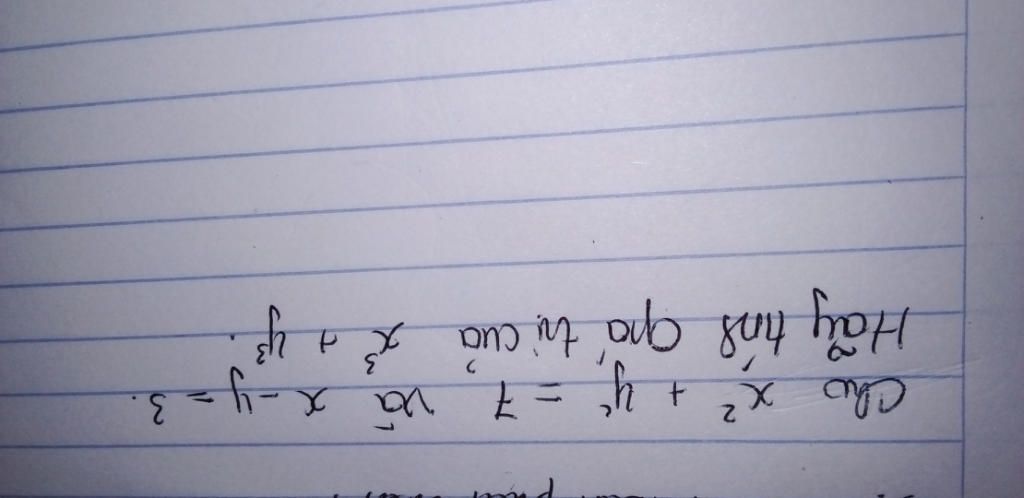 Cho x² + y² = 7 và x - y = 3.
Hãy tính giá trị của x³ + y³.